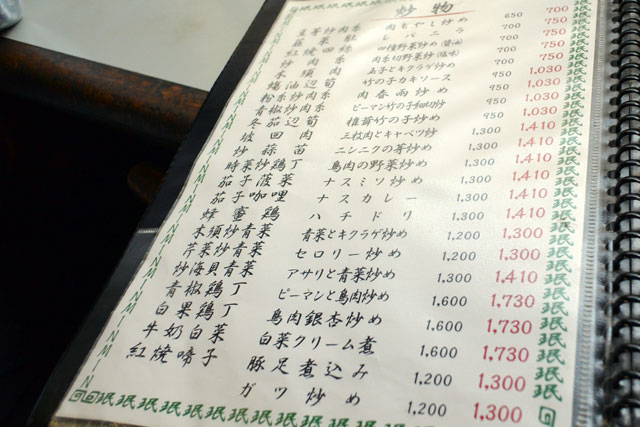 炒物
豆芽炒肉糸 肉もやし炒め
韮菜肚 レバニラ 650 700
紅焼四絲 四種野菜炒め(醤油) 700 750
炒肉糸 肉糸切野菜炒め(塩味) 700 750
木須肉 玉子とキクラゲ炒め 700 750
蠔油辺筍 竹の子カキソース 950 1,030
粉糸炒肉糸 肉春雨炒め 950 1,030
青椒炒肉糸 ピーマン竹の子細切炒め 950 1,030
冬茄辺筍 椎茸竹の子炒め 950 1,030
坡田肉 三枚肉とキャベツ炒 1,300 1,410
炒蒜苗 ニンニクの芽炒め 1,300 1,410
時菜炒鶏丁 鳥肉の野菜炒め 1,300 1,410
茄子菠菜 ナスミソ炒め 1,300 1,410
茄子咖哩 ナスカレー 1,300 1,410
蜂蜜鶏 ハチドリ 1,300 1,410
木須炒青菜 青菜とキクラゲ炒め 1,200 1,300
芹菜炒青菜 セロリー炒め 1,200 1,300
炒海貝青菜 アサリと青菜炒め 1,300 1,410
青椒鶏丁 ピーマンと鳥肉炒め 1,600 1,730
白果鶏丁 鳥肉銀杏炒め 1,600 1,730
牛奶白菜 白菜クリーム煮 1,600 1,730
紅焼啼子 豚足煮込み 1,200 1,300
ガツ炒め 1,200 1,300